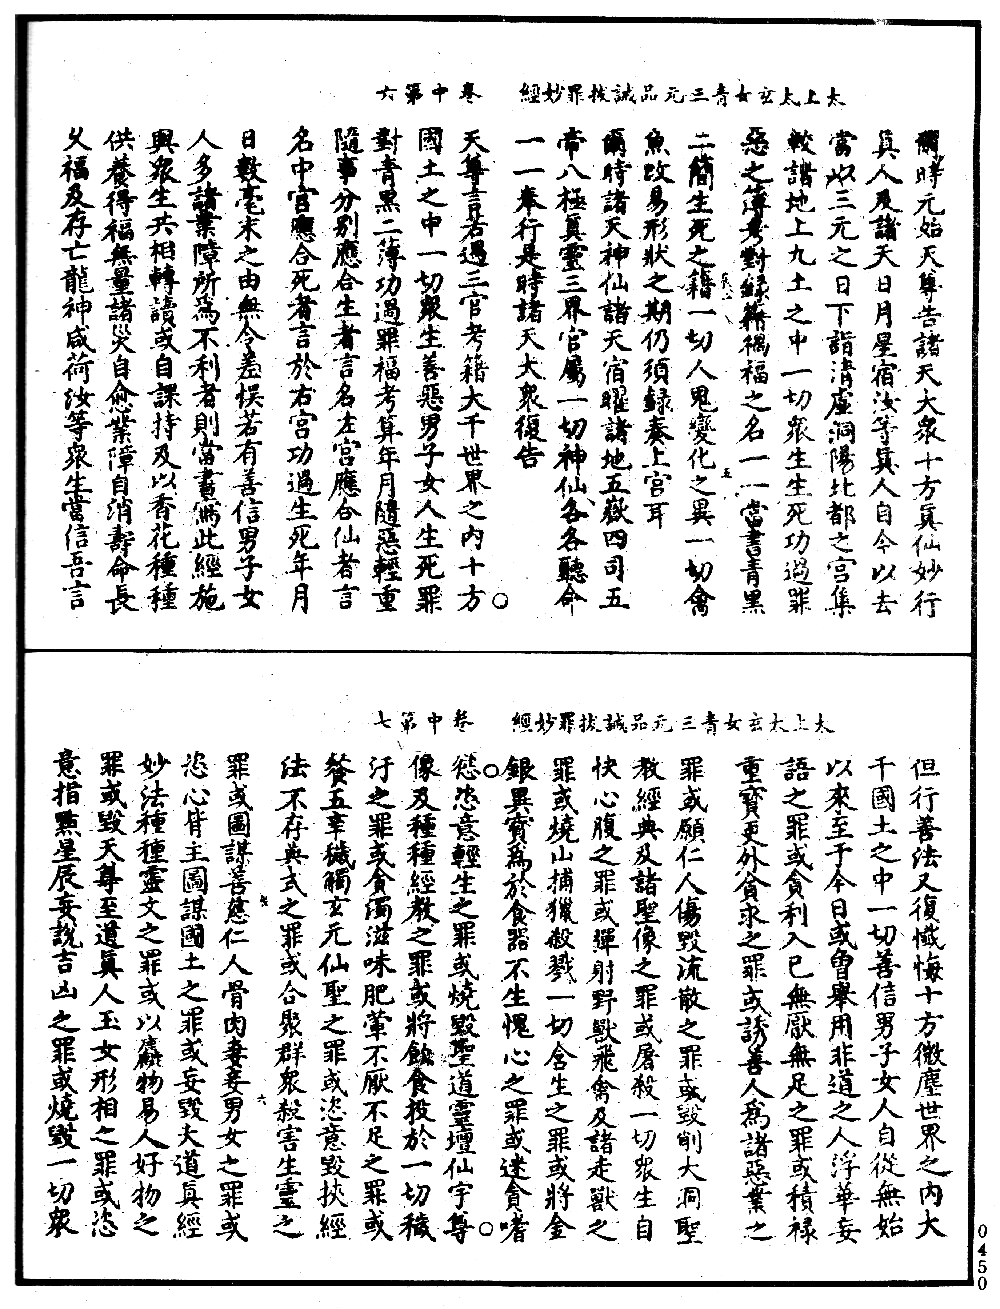 太上太玄女青三元品誡拔罪妙經　卷中第六
爾時元始天尊告諸天大衆十方真仙妙行
真人及諸天日月星宿汝等真人自今以去
當以三元之日下詣清虛洞陽北都之宮集
較諸地上九土之中一切衆生生死功過罪
惡之簿考對錄籍禍福之名一一當書青黑
二簡生死之籍一切人鬼變化之異一切禽
魚改易形狀之期仍須錄奏上宮耳
爾時諸天神仙諸天宿曜諸地五嶽四司五
帝八極真靈三界官屬一切神仙各各聽命
一一奉行是時諸天大衆復告
天尊言若遇三官考籍大千世界之內十方
國土之中一切衆生善惡男子女人生死罪
對青黑二簿功過罪福考算年月隨惡輕重
隨事分別應合生者言名左宮應合仙者言
名中宮應合死者言於右宮功過生死年月
日數毫末之由無令差悮若有善信男子女
人多諸業障所爲不利者則當書寫此經施
與衆生共相轉讀或自課持及以香花種種
供養得福無量諸災自愈業障自消壽命長
久福及存亡龍神咸荷汝等衆生當信吾言
太上太玄女青三元品誡拔罪妙經　卷中第七
但行善法又復懺悔十方微塵世界之內大
千國土之中一切善信男子女人自從無始
以來至于今日或曾舉用非道之人浮華妄
語之罪或貪利入己無厭無足之罪或積祿
重寶更外貪求之罪或誘善人爲諸惡業之
罪或願仁人傷毀流散之罪或毀削大洞聖
教經典及諸聖像之罪或屠殺一切衆生自
快心腹之罪或彈射野獸飛禽及諸走獸之
罪或燒山捕獵殺戮一切含生之罪或將金
銀異寶爲於食器不生愧心之罪或迷貪嗜
慾恣意輕生之罪或燒毀聖道靈壇仙宇尊
像及種種經教之罪或將飲食投於一切穢
汙之罪或貪濁滋味肥葷不厭不足之罪或
餐五辛穢觸玄元仙聖之罪或恣意毀挾經
法不存典式之罪或合聚群衆殺害生靈之
罪或圖謀善慈仁人骨肉妻妾男女之罪或
恣心背主圖謀國土之罪或妄毀大道真經
妙法種種靈文之罪或以麤物易人好物之
罪或毀天尊至道真人玉女形相之罪或恣
意指㸃星辰妄說吉凶之罪或燒毀一切衆
0450